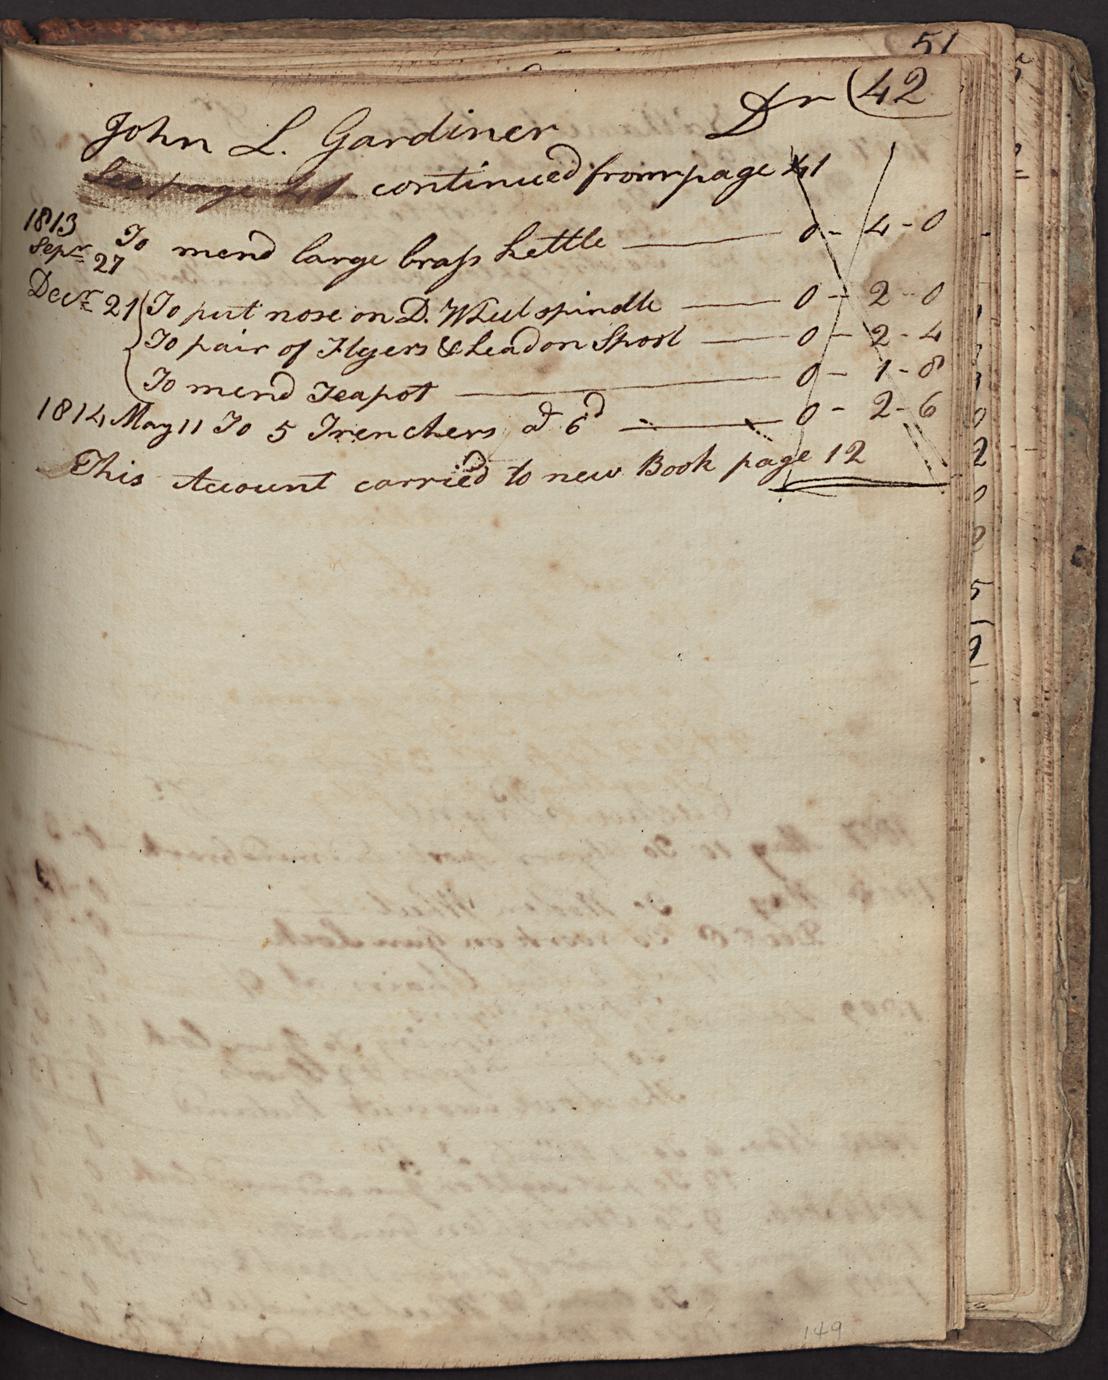 51
John L. Gardiner Dr (42
See page 41 continued from page 41
1813
Sepr 27 To mend large brass kettle 0 - 4 - 0
Decr 21 To put nose on D. Wheel spindle 0 - 2 - 0
To pair of Flyers & Lead on Spool 0 - 2 - 4
To mend Teapot 0 - 1 - 8
1814 May 11 To 5 Trenchers at 6d 0 - 2 - 6
This Account carried to new Book page 12
149